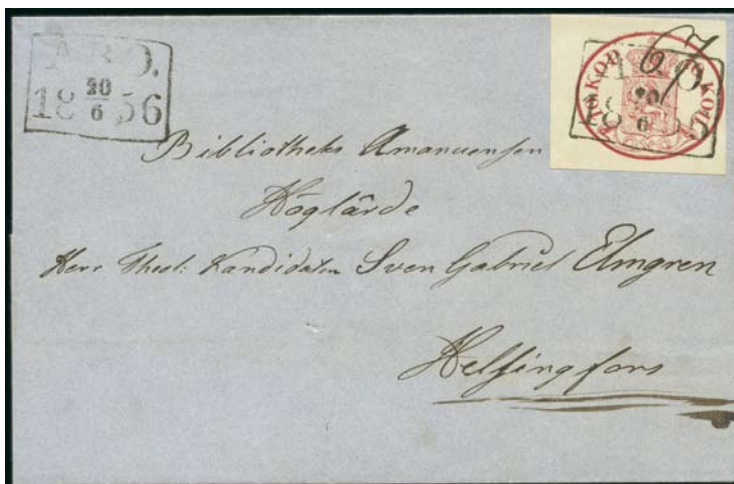 ABO.
18 20/6 56
10 KOP. 10 KOP.
67
ABO.
18 20/6 56
Bibliotheks Amanuensen
Höglärde
Herr Theol: Kandidaten Sven Gabriel Elmgren
Helsingfors